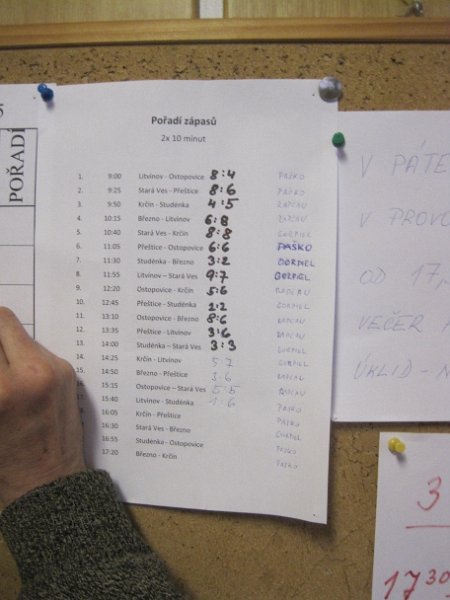 5
POŘADÍ
Pořadí zápasů
2x 10 minut
1. 9:00 Litvínov - Ostopovice 8:4 PAŠKO
2. 9:25 Stará Ves - Přeštice 8:6 PAŠKO
3. 9:50 Krčín - Studénka 4:5
4. 10:15 Březno - Litvínov 6:8
5. 10:40 Stará Ves - Krčín 8:8
6. 11:05 Přeštice - Ostopovice 6:6 PAŠKO
7. 11:30 Studénka - Březno 3:2
8. 11:55 Litvínov – Stará Ves 9:7
9. 12:20 Ostopovice - Krčín 5:6
10. 12:45 Přeštice - Studénka 2:2
11. 13:10 Ostopovice - Březno 8:6
12. 13:35 Přeštice - Litvínov 3:6
13. 14:00 Studénka – Stará Ves 3:3
14. 14:25 Krčín - Litvínov 5:7
15. 14:50 Březno - Přeštice 3:6
16. 15:15 Ostopovice – Stará Ves 5:5
17. 15:40 Litvínov - Studénka 1:6 PAŠKO
16:05 Krčín - Přeštice PAŠKO
16:30 Stará Ves - Březno
16:55 Studénka - Ostopovice PAŠKO
17:20 Březno - Krčín PAŠKO
V PÁTE
V PROVO
OD 17,
VEČER
ÚKLID - N
3
17 30